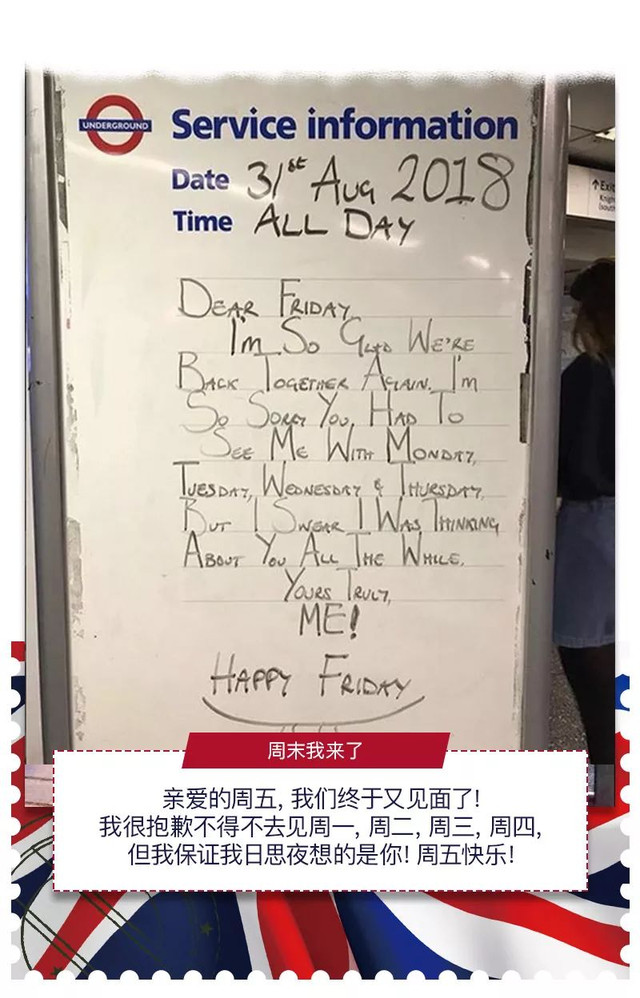 UNDERGROUND
Service information
Date 31st Aug 2018
Time ALL DAY
↑Exit
DEAR FRIDAY,
I'M SO GLAD WE'RE
BACK TOGETHER AGAIN. I'M
SO SORRY YOU HAD TO
SEE ME WITH MONDAY,
TUESDAY, WEDNESDAY & THURSDAY,
BUT I SWEAR I WAS THINKING
ABOUT YOU ALL THE WHILE.
YOURS TRULY,
ME!
HAPPY FRIDAY
周末我来了
亲爱的周五, 我们终于又见面了!
我很抱歉不得不去见周一, 周二, 周三, 周四,
但我保证我日思夜想的是你! 周五快乐!